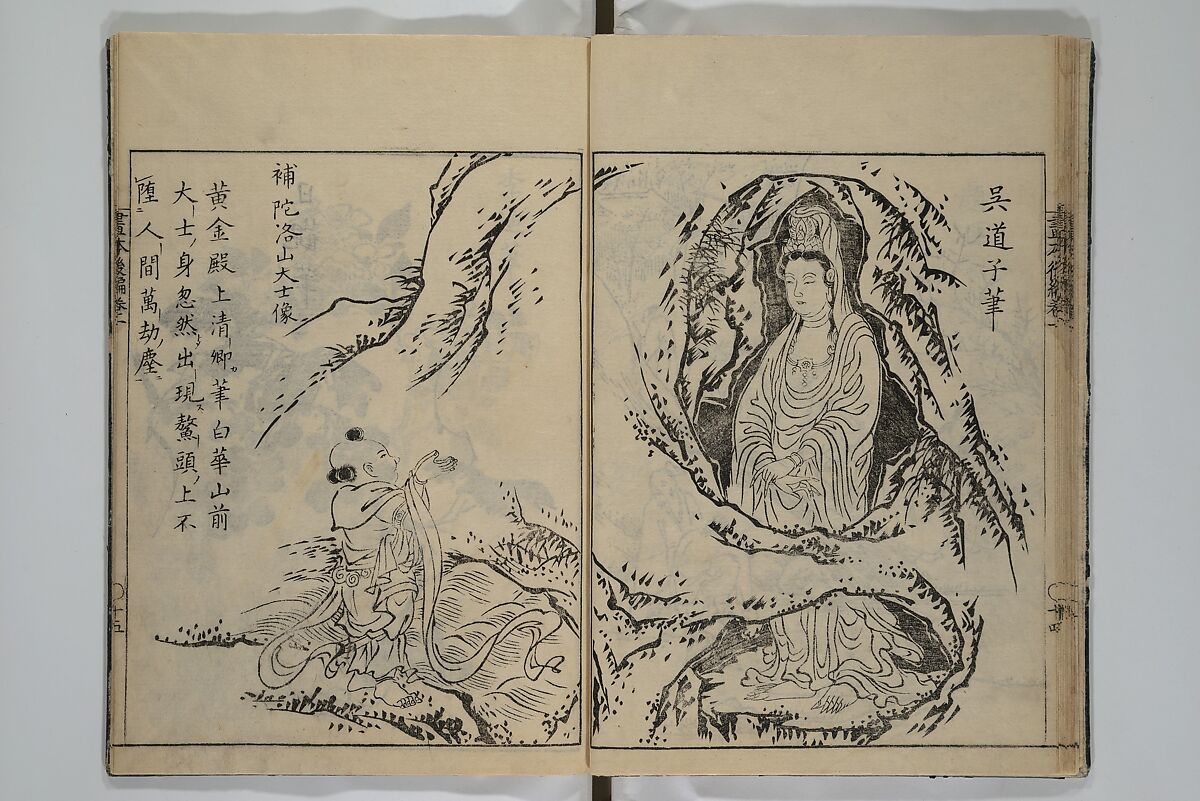 吳道子筆
補陀洛山大士像
黃金殿上清卿筆白華山前
大士ノ身忽然出現ス鰲頭ノ上不
墮二人間萬劫塵二
畫本後編卷二
十五
十四